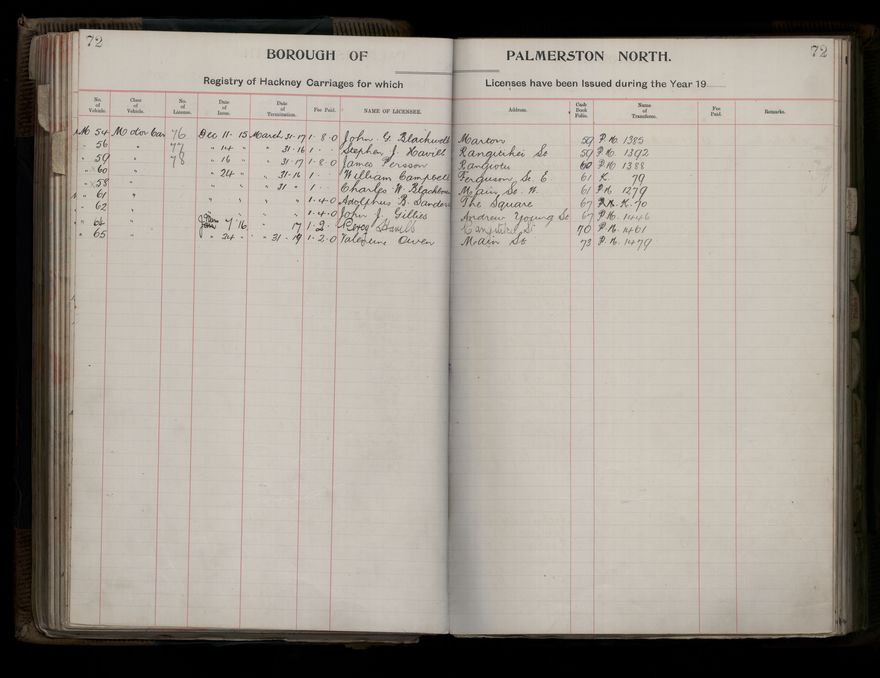 72
BOROUGH OF PALMERSTON NORTH. 72
Registry of Hackney Carriages for which Licenses have been Issued during the Year 19
No. of Vehicle. Class of Vehicle. No. of License. Date of Issue. Date of Termination. Fee Paid. NAME OF LICENSEE. Address. Cash Book Folio. Name of Transferee. Fee Paid. Remarks.
M 54 Motor Car 76 Dec 11 - 15 March 31-17 1-8-0 John G. Marton 59 P.N. 1385
" 56 " 77 " 14 " " 31-16 1 - - Stephen J. Rangitikei St 59 P.N. 1392
" 59 " 78 " 16 " " 31-17 1-8-0 James Persson Rangiotu 60 P.N. 1388
" 60 " " 24 " " 31-16 1 William Campbell Ferguson St. E 61 K. 79
" 58 " " " " 31 " 1 Charles W. Main St. W. 61 P.N. 1279
" 61 " " " " " " 1-4-0 Adolphus B. The Square 67 K. 70
" 62 " " " " 1-4-0 John J. Gillies Andrew Young St 67 P.N. 1446
" 64 " Jan 7 16 " 17 1-2- Percy 70 P.N. 1461
" 65 " " 24 " " 31-17 1-2-0 Valentine Owen Main St 73 P.N. 1479